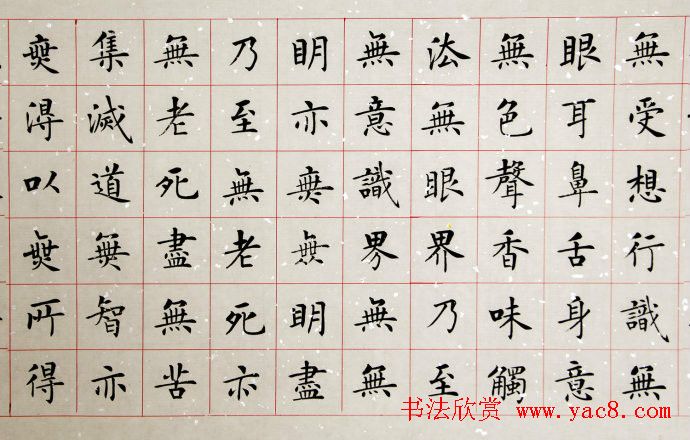 無受想行識無
眼耳鼻舌身意
無色聲香味觸
法無眼界乃至
無意識界無無
明亦無無明盡
乃至無老死亦
無老死盡無苦
集滅道無智亦
無得以無所得
书法欣赏 www.yac8.com